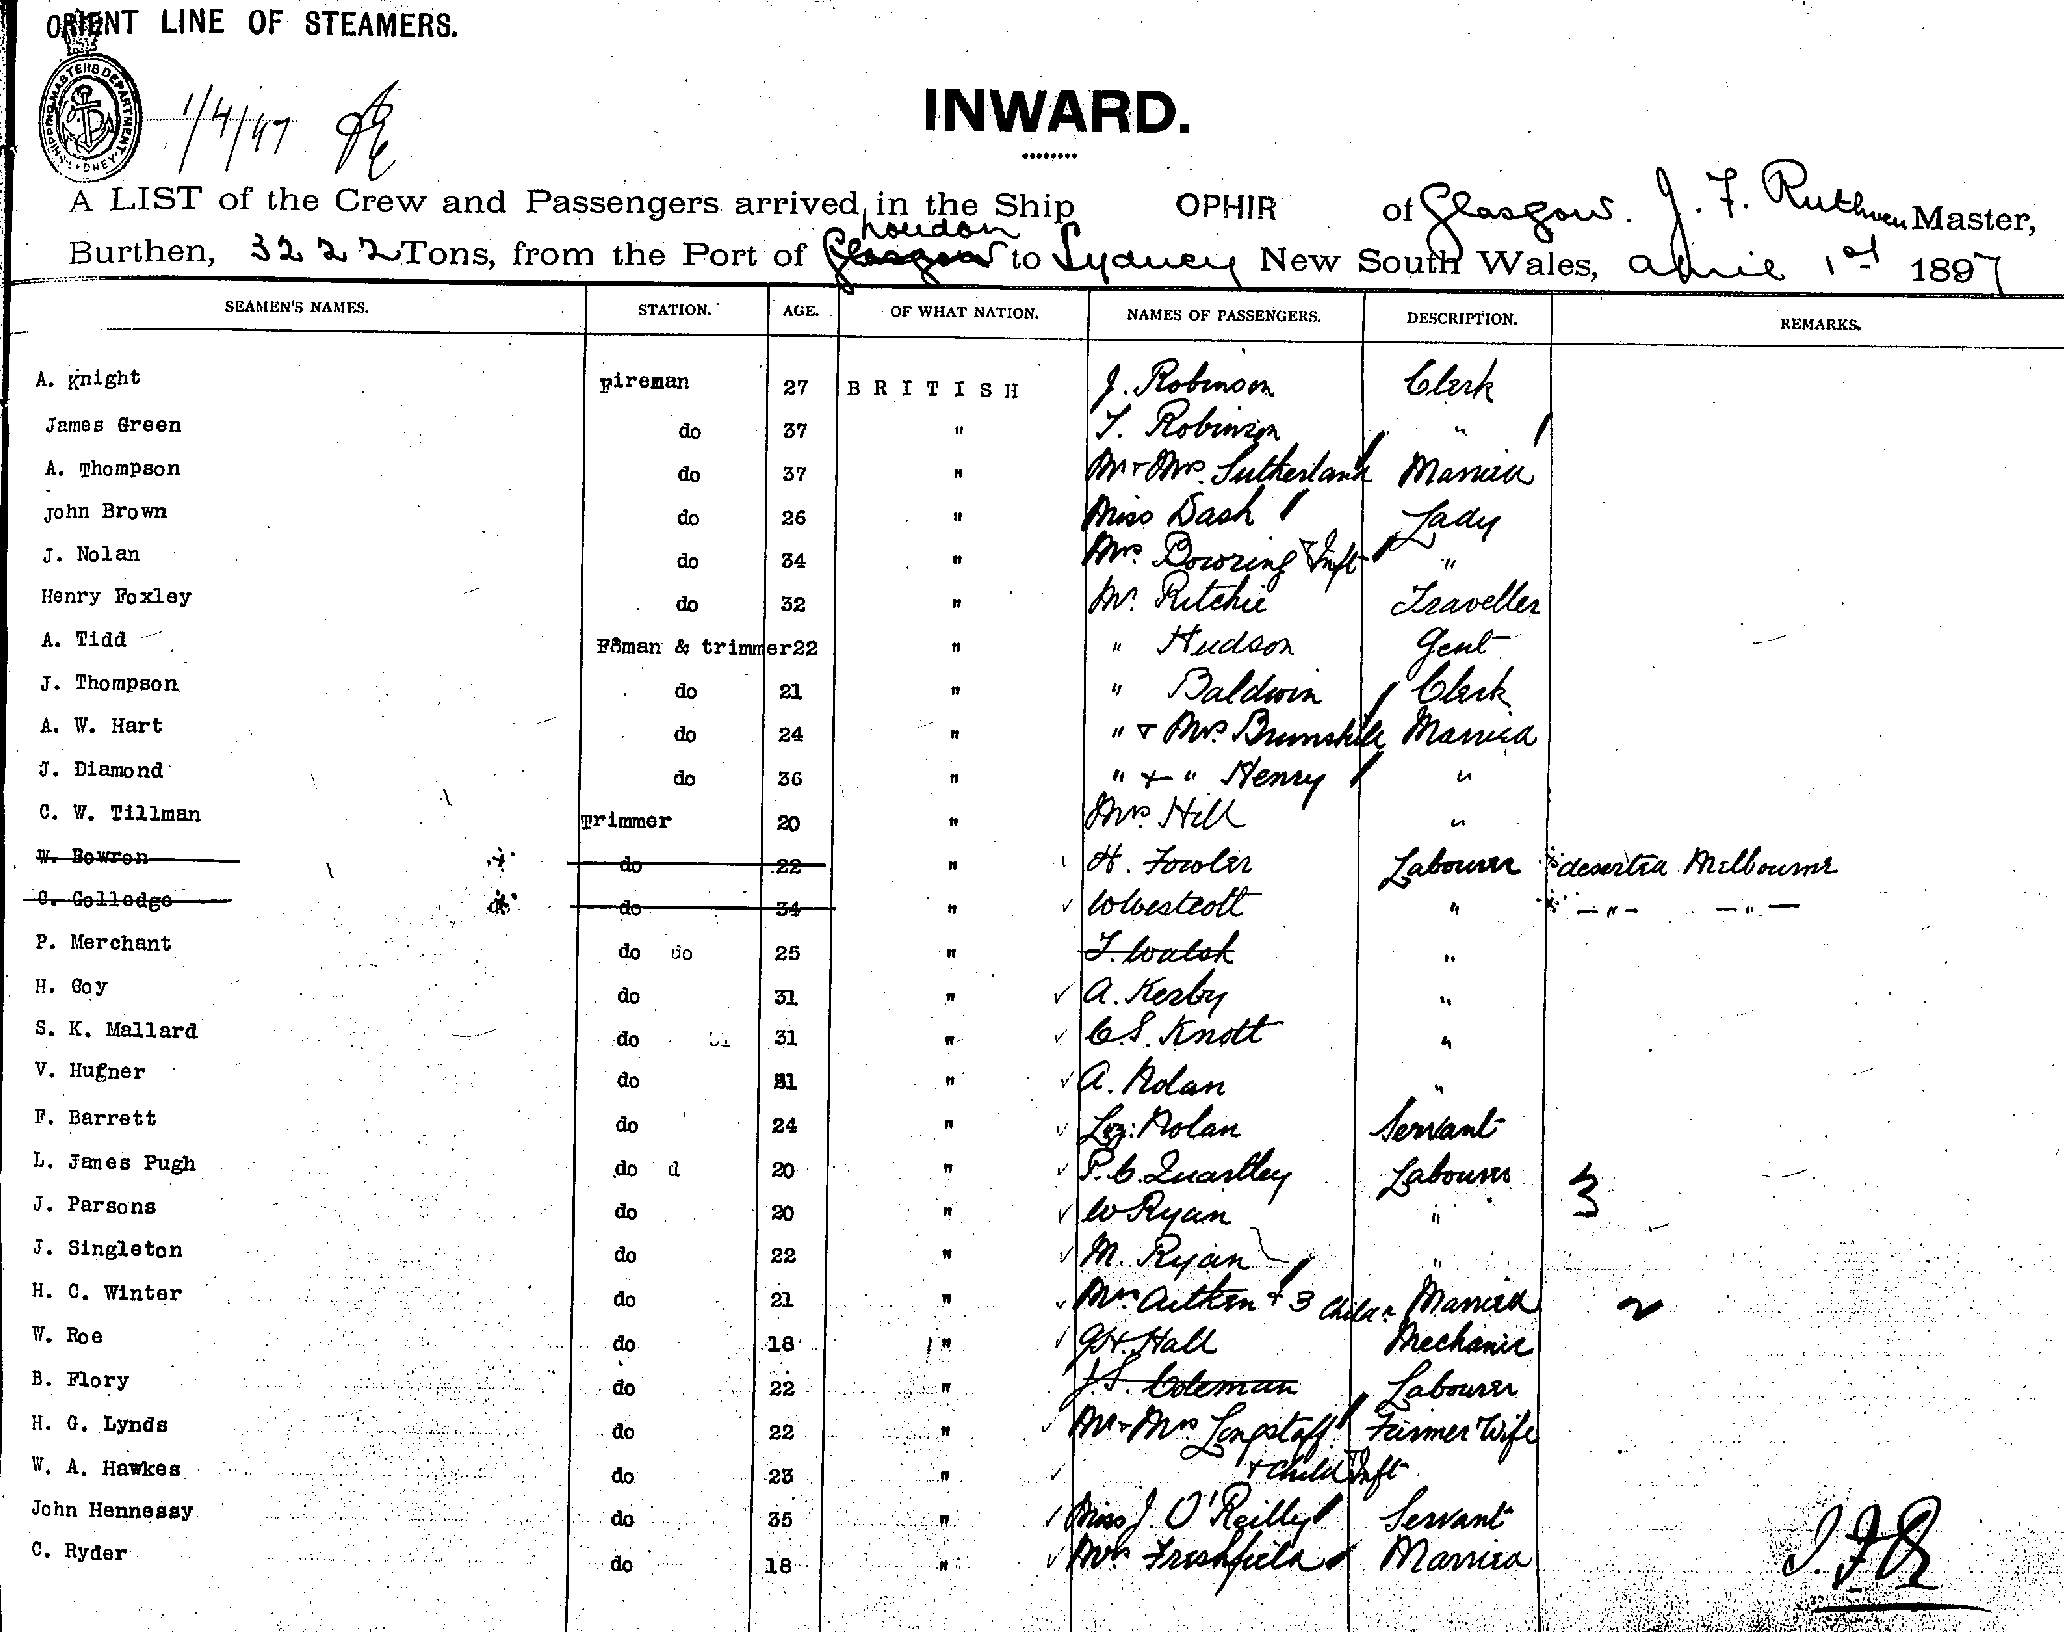 ORIENT LINE OF STEAMERS.
SHIPPING MASTERS DEPARTMENT SYDNEY
1/4/97
INWARD.
A LIST of the Crew and Passengers arrived in the Ship OPHIR of Glasgow. J. F. Ruthven Master,
London
Burthen, 3222 Tons, from the Port of Glasgow to Sydney New South Wales, April 1st 1897
SEAMEN'S NAMES. STATION. AGE. OF WHAT NATION. NAMES OF PASSENGERS. DESCRIPTION. REMARKS.
A. Knight Fireman 27 BRITISH J. Robinson Clerk
James Green do 37 " T. Robinson "
A. Thompson do 37 " Mr & Mrs Sutherland Married
John Brown do 26 " Miss Dash Lady
J. Nolan do 34 " Mrs. Bowring & Inft "
Henry Foxley do 32 " Mr. Ritchie Traveller
A. Tidd F&man & trimmer 22 " " Hudson Gent
J. Thompson do 21 " " Baldwin Clerk
A. W. Hart do 24 " " & Mrs. Brunskill Married
J. Diamond do 36 " " + " Henry "
C. W. Tillman Trimmer 20 " Mrs. Hill "
W. Bowron do 22 " H. Fowler Labourer deserted Melbourne
C. Colledge do 34 " W Westcott " — " — — " —
P. Merchant do do 25 " T. Walsh "
H. Goy do 31 " A. Kerby "
S. K. Mallard do 31 " C. S. Knott "
V. Hugner do 31 " A. Nolan "
F. Barrett do 24 " Liz: Nolan Servant
L. James Pugh do d 20 " P. C. Quartley Labourer 3
J. Parsons do 20 " W Ryan "
J. Singleton do 22 " M. Ryan "
H. C. Winter do 21 " Mrs Aitken & 3 Childn Married 2
W. Roe do 18 " G H. Hall Mechanic
B. Flory do 22 " J. S. Coleman Labourer
H. G. Lynds do 22 " Mr & Mrs Longstaff Farmer Wife
W. A. Hawkes do 23 " & Child & Inft
John Hennessy do 35 " Miss J. O'Reilly Servant
C. Ryder do 18 " Mrs Freshfield Married
J. F. R